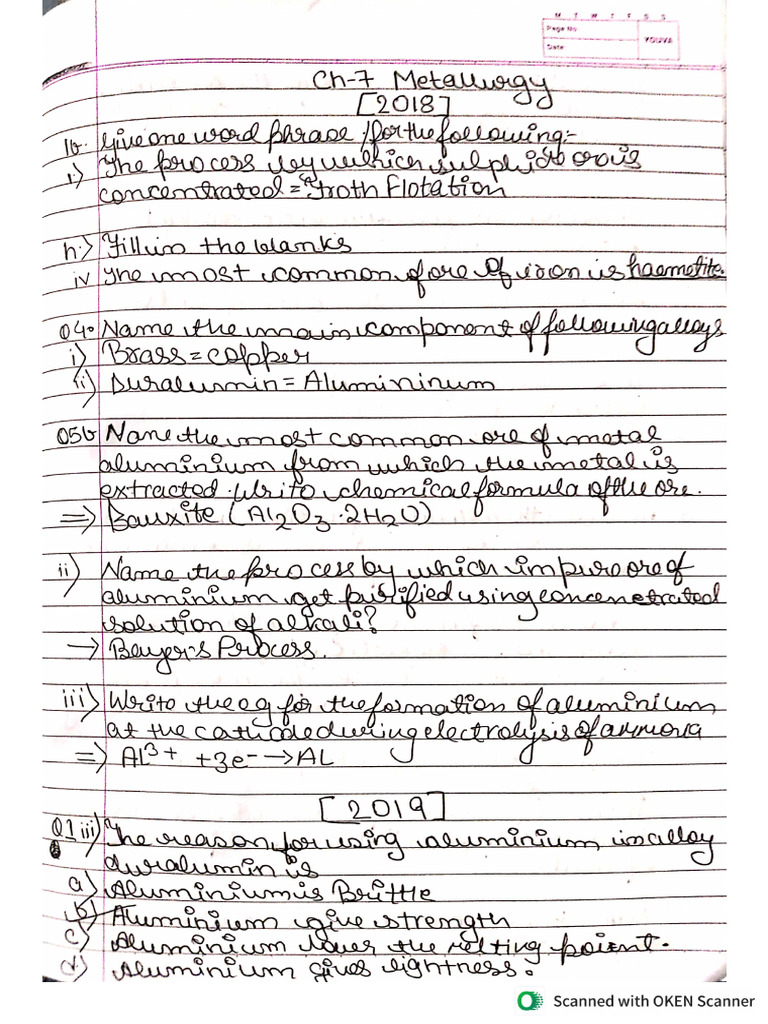 M T W T F S S
Page No
YOUVA
Date
Ch-7 Metallurgy
[2018]
1b. Give one word phrase /for the following:-
i) The process by which sulphide ore is
concentrated = Froth Flotation
h.) Fill in the blanks
iv The most common of ore of iron is haemetite.
04. Name the main component of following alloys
i) Brass = copper
ii) Duralumin = Alumininum
05b Name the most common ore of metal
aluminium from which the metal is
extracted. Write chemical formula of the ore.
=> Bauxite (Al2O3·2H2O)
ii) Name the process by which impure ore of
aluminium get purified using concenetrated
solution of alkali?
→ Bayer's Process.
iii) Write the eq for the formation of aluminium
at the cathode during electrolysis of
=> Al3+ +3e- → AL
[2019]
Q1 iii) The reason for using aluminium in alloy
duralumin is
a) Aluminium is Brittle
b) Aluminium give strength
c) Aluminium lower the melting point.
d) Aluminium gives lightness.
Scanned with OKEN Scanner